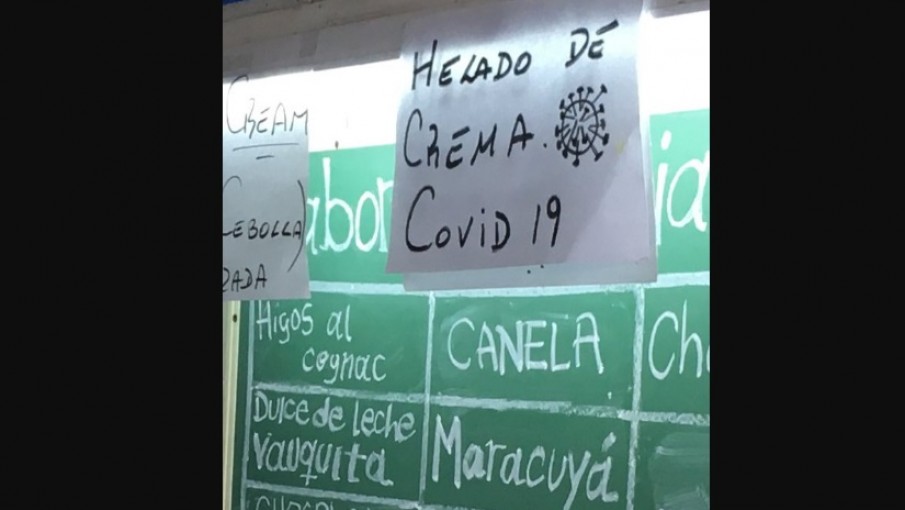 CREAM
CEBOLLA)
HELADO DE
CREMA.
COVID 19
Higos al
cognac
CANELA
Dulce de leche
Vauquita
Maracuyá